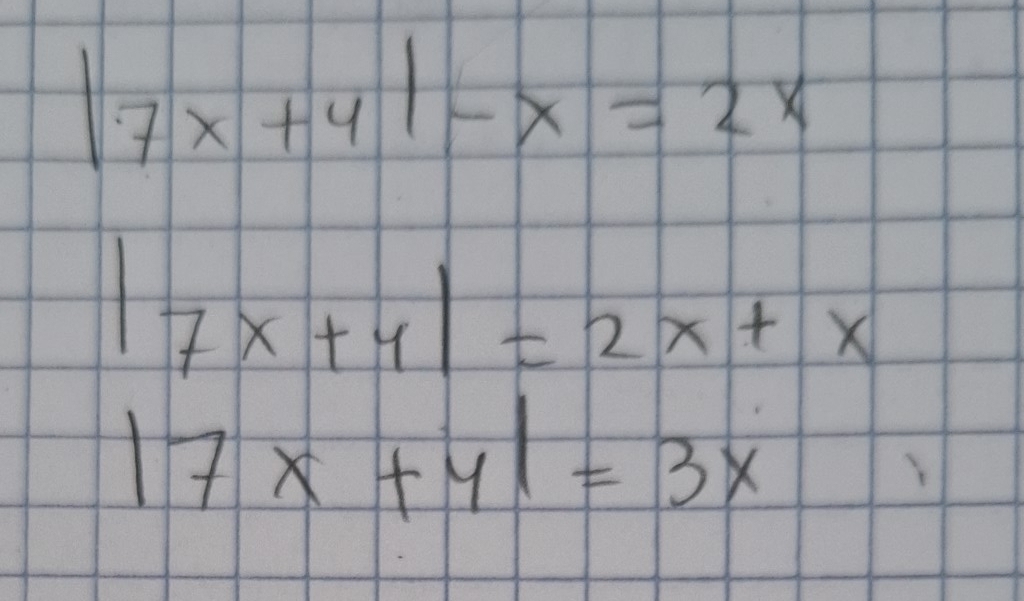 |7x+4|-x=2x
|7x+4|=2x+x
|7x+4|=3x